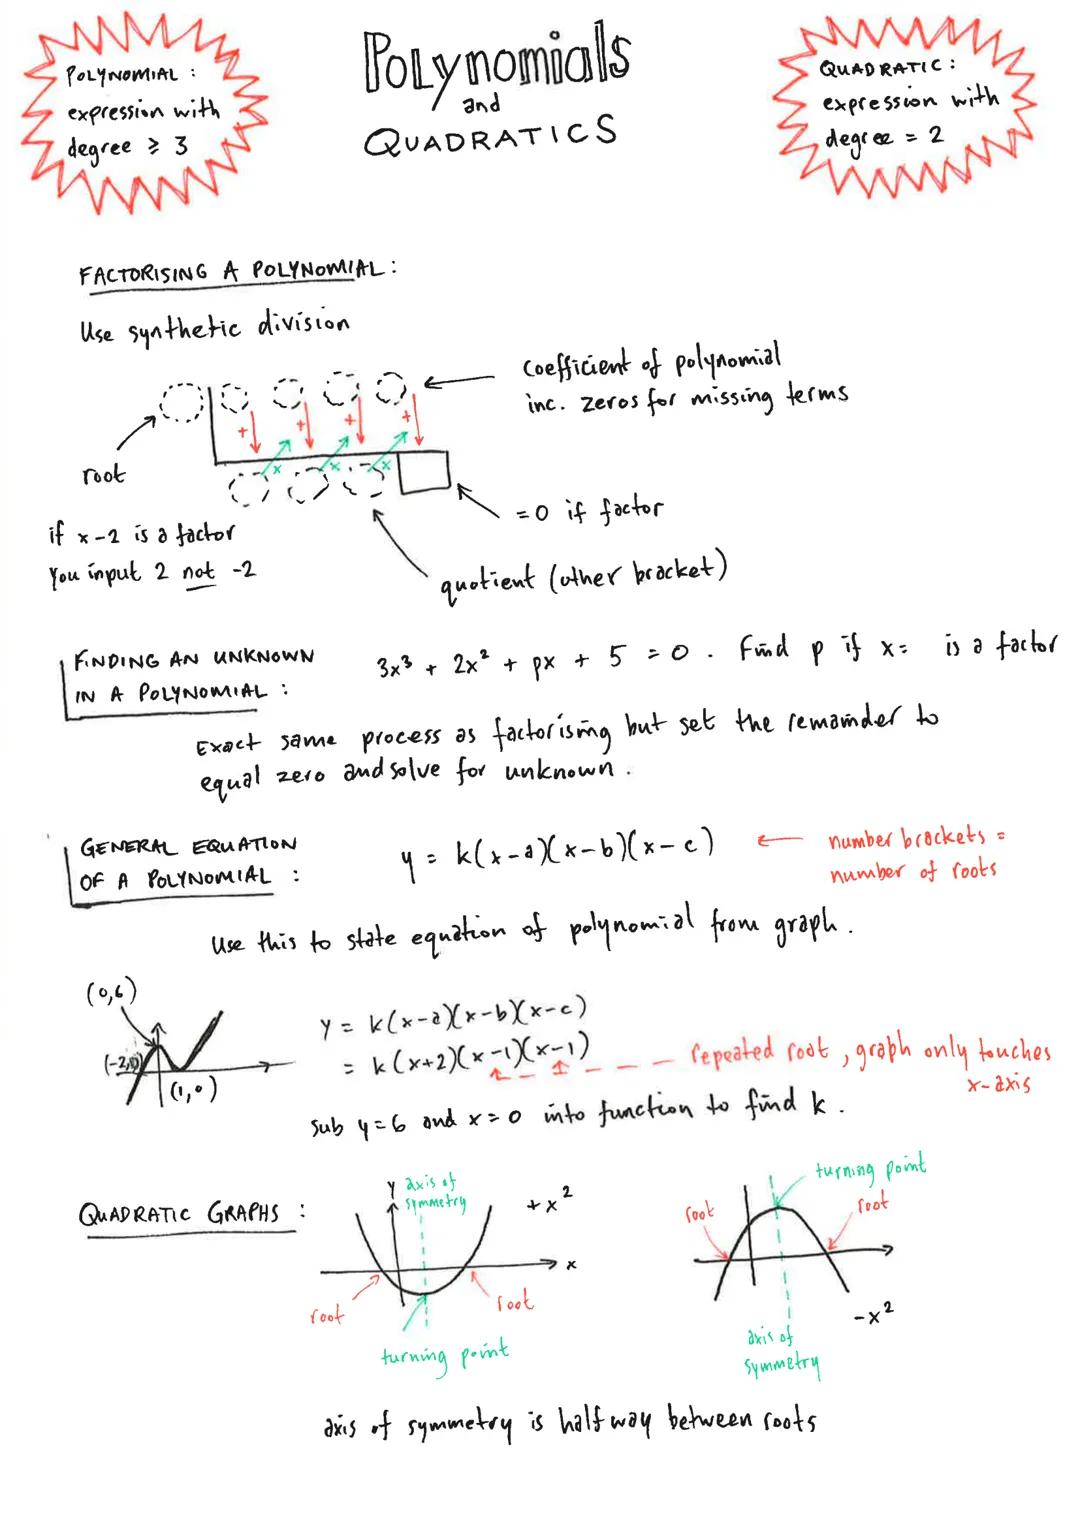 POLYNOMIAL :
expression with
degree ≥ 3
Polynomials
and
QUADRATICS
QUADRATIC :
expression with
degree = 2
FACTORISING A POLYNOMIAL :
Use synthetic division
coefficient of polynomial
inc. zeros for missing terms
+ + + +
x x x
root
= 0 if factor
if x-2 is a factor
You input 2 not -2
quotient (other bracket)
FINDING AN UNKNOWN
IN A POLYNOMIAL :
3x³ + 2x² + px + 5 = 0 . Find p if x= is a factor
Exact same process as factorising but set the remainder to
equal zero and solve for unknown .
GENERAL EQUATION
OF A POLYNOMIAL :
y = k(x-a)(x-b)(x-c)
number brackets =
number of roots
Use this to state equation of polynomial from graph .
(0,6)
(-2,0)
(1,0)
y = k(x-a)(x-b)(x-c)
= k(x+2)(x-1)(x-1)
repeated root, graph only touches
x-axis
Sub y=6 and x=0 into function to find k .
QUADRATIC GRAPHS :
y
axis of
symmetry
+x²
x
root
root
turning point
turning point
root
root
-x²
axis of
symmetry
axis of symmetry is halfway between roots